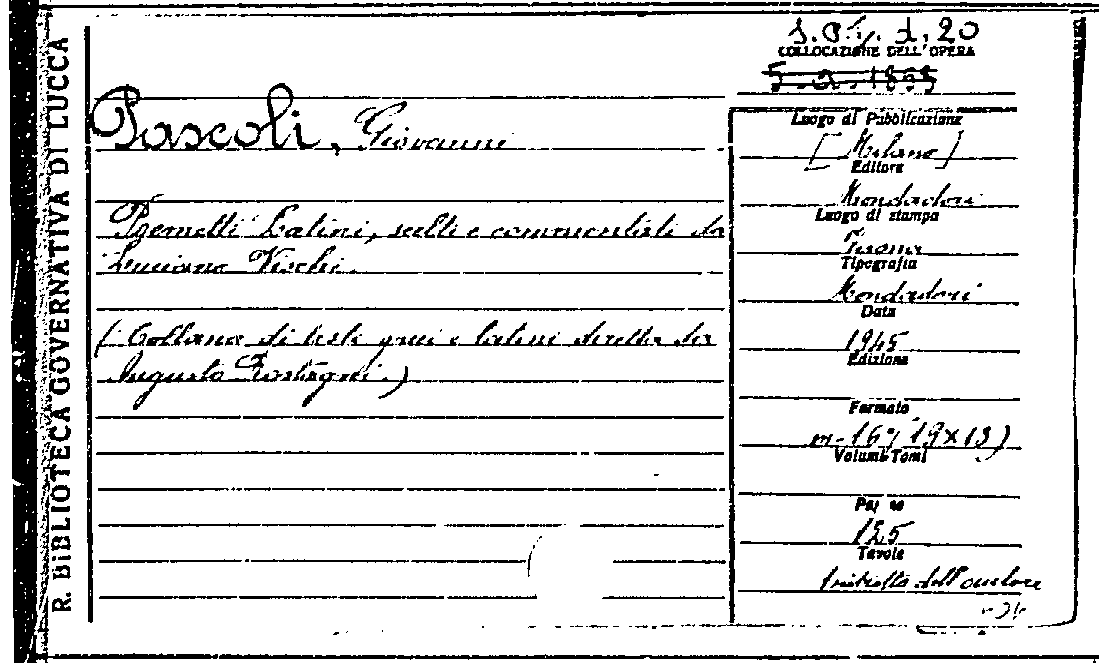 R. BIBLIOTECA GOVERNATIVA DI LUCCA
COLLOCAZIONE DELL'OPERA
Pascoli, Giovanni
Poemetti Latini, scelti e commentati da
Luciano Vischi.
(Collana di testi greci e latini diretta da
Augusto Rostagni.)
Luogo di Pubblicazione
[Milano]
Editore
Mondadori
Luogo di stampa
Verona
Tipografia
Mondadori
Data
1945
Edizione
Formato
in-16° (19×13)
Volumi Tomi
125
Tavole
1 ritratto dell'autore